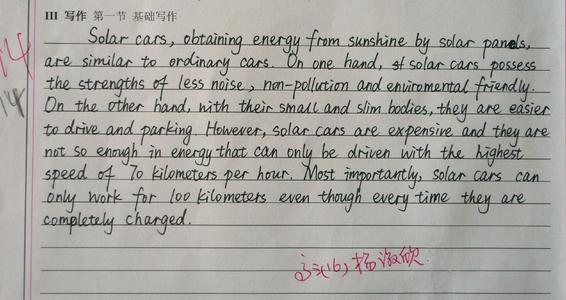 III 写作 第一节 基础写作
14
14
Solar cars, obtaining energy from sunshine by solar panels,
are similar to ordinary cars. On one hand, solar cars possess
the strengths of less noise, non-pollution and enviromental friendly.
On the other hand, with their small and slim bodies, they are easier
to drive and parking. However, solar cars are expensive and they are
not so enough in energy that can only be driven with the highest
speed of 70 kilometers per hour. Most importantly, solar cars can
only work for 100 kilometers even though every time they are
completely charged.